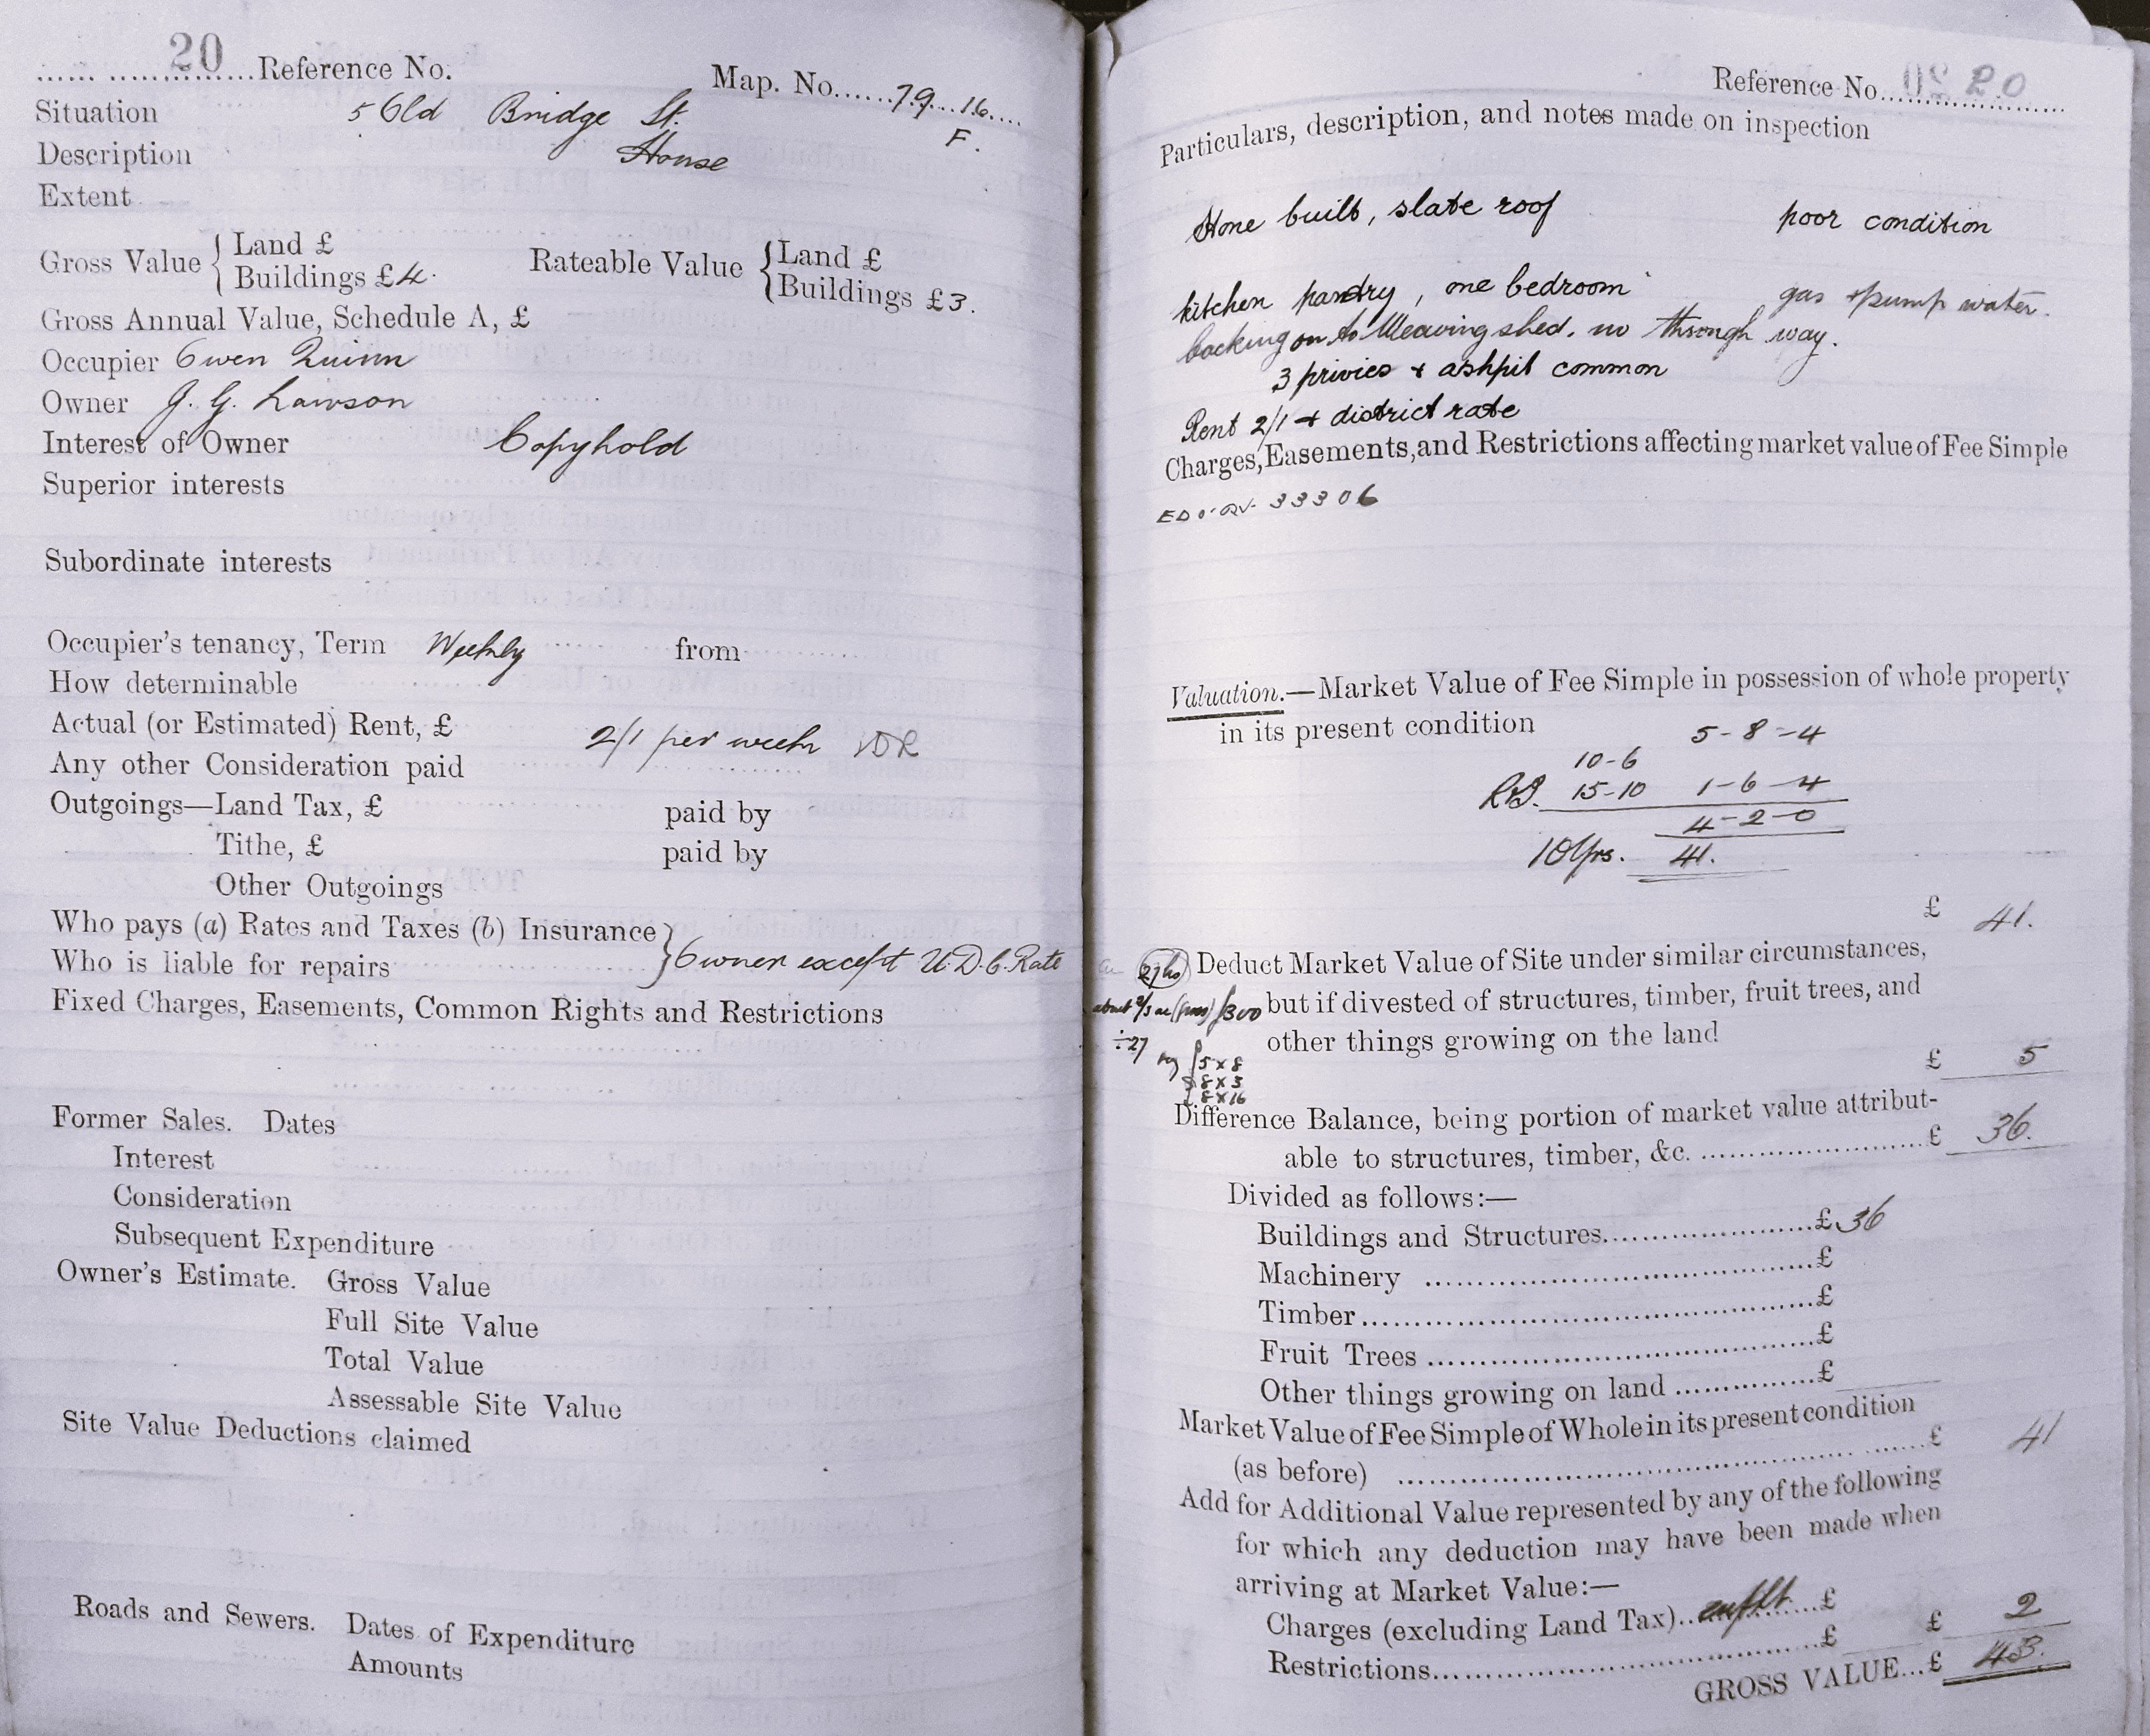 20 Reference No. Map. No. 79 16
F.
Situation 5 Old Bridge St.
Description House
Extent
Gross Value { Land £
Buildings £4. Rateable Value { Land £
Buildings £3.
Gross Annual Value, Schedule A, £
Occupier Owen Quinn
Owner J. G. Lawson
Interest of Owner Copyhold
Superior interests
Subordinate interests
Occupier's tenancy, Term Weekly from
How determinable
Actual (or Estimated) Rent, £ 2/1 per week + DR
Any other Consideration paid
Outgoings—Land Tax, £ paid by
Tithe, £ paid by
Other Outgoings
Who pays (a) Rates and Taxes (b) Insurance
Who is liable for repairs } Owner except U.D.C. Rate
Fixed Charges, Easements, Common Rights and Restrictions
Former Sales. Dates
Interest
Consideration
Subsequent Expenditure
Owner's Estimate. Gross Value
Full Site Value
Total Value
Assessable Site Value
Site Value Deductions claimed
Roads and Sewers. Dates of Expenditure
Amounts
Reference No. 20
Particulars, description, and notes made on inspection
Stone built, slate roof poor condition
kitchen pantry, one bedroom gas + pump water.
backing on to Weaving shed. no through way.
3 privies + ashpit common
Rent 2/1 + district rate
Charges, Easements, and Restrictions affecting market value of Fee Simple
33306
Valuation.—Market Value of Fee Simple in possession of whole property
in its present condition
5-8-4
10-6
15-10 1-6-4
4-2-0
10 Yrs. 41.
£ 41.
Deduct Market Value of Site under similar circumstances,
about 2/3 ac £300 but if divested of structures, timber, fruit trees, and
÷27 other things growing on the land
5 x 8
8 x 3
8 x 16
£ 5
Difference Balance, being portion of market value attribut-
able to structures, timber, &c. £ 36.
Divided as follows:—
Buildings and Structures £ 36
Machinery £
Timber £
Fruit Trees £
Other things growing on land £
Market Value of Fee Simple of Whole in its present condition
(as before) £ 41
Add for Additional Value represented by any of the following
for which any deduction may have been made when
arriving at Market Value:—
Charges (excluding Land Tax) £
Restrictions £ £ 2
GROSS VALUE... £ 43.